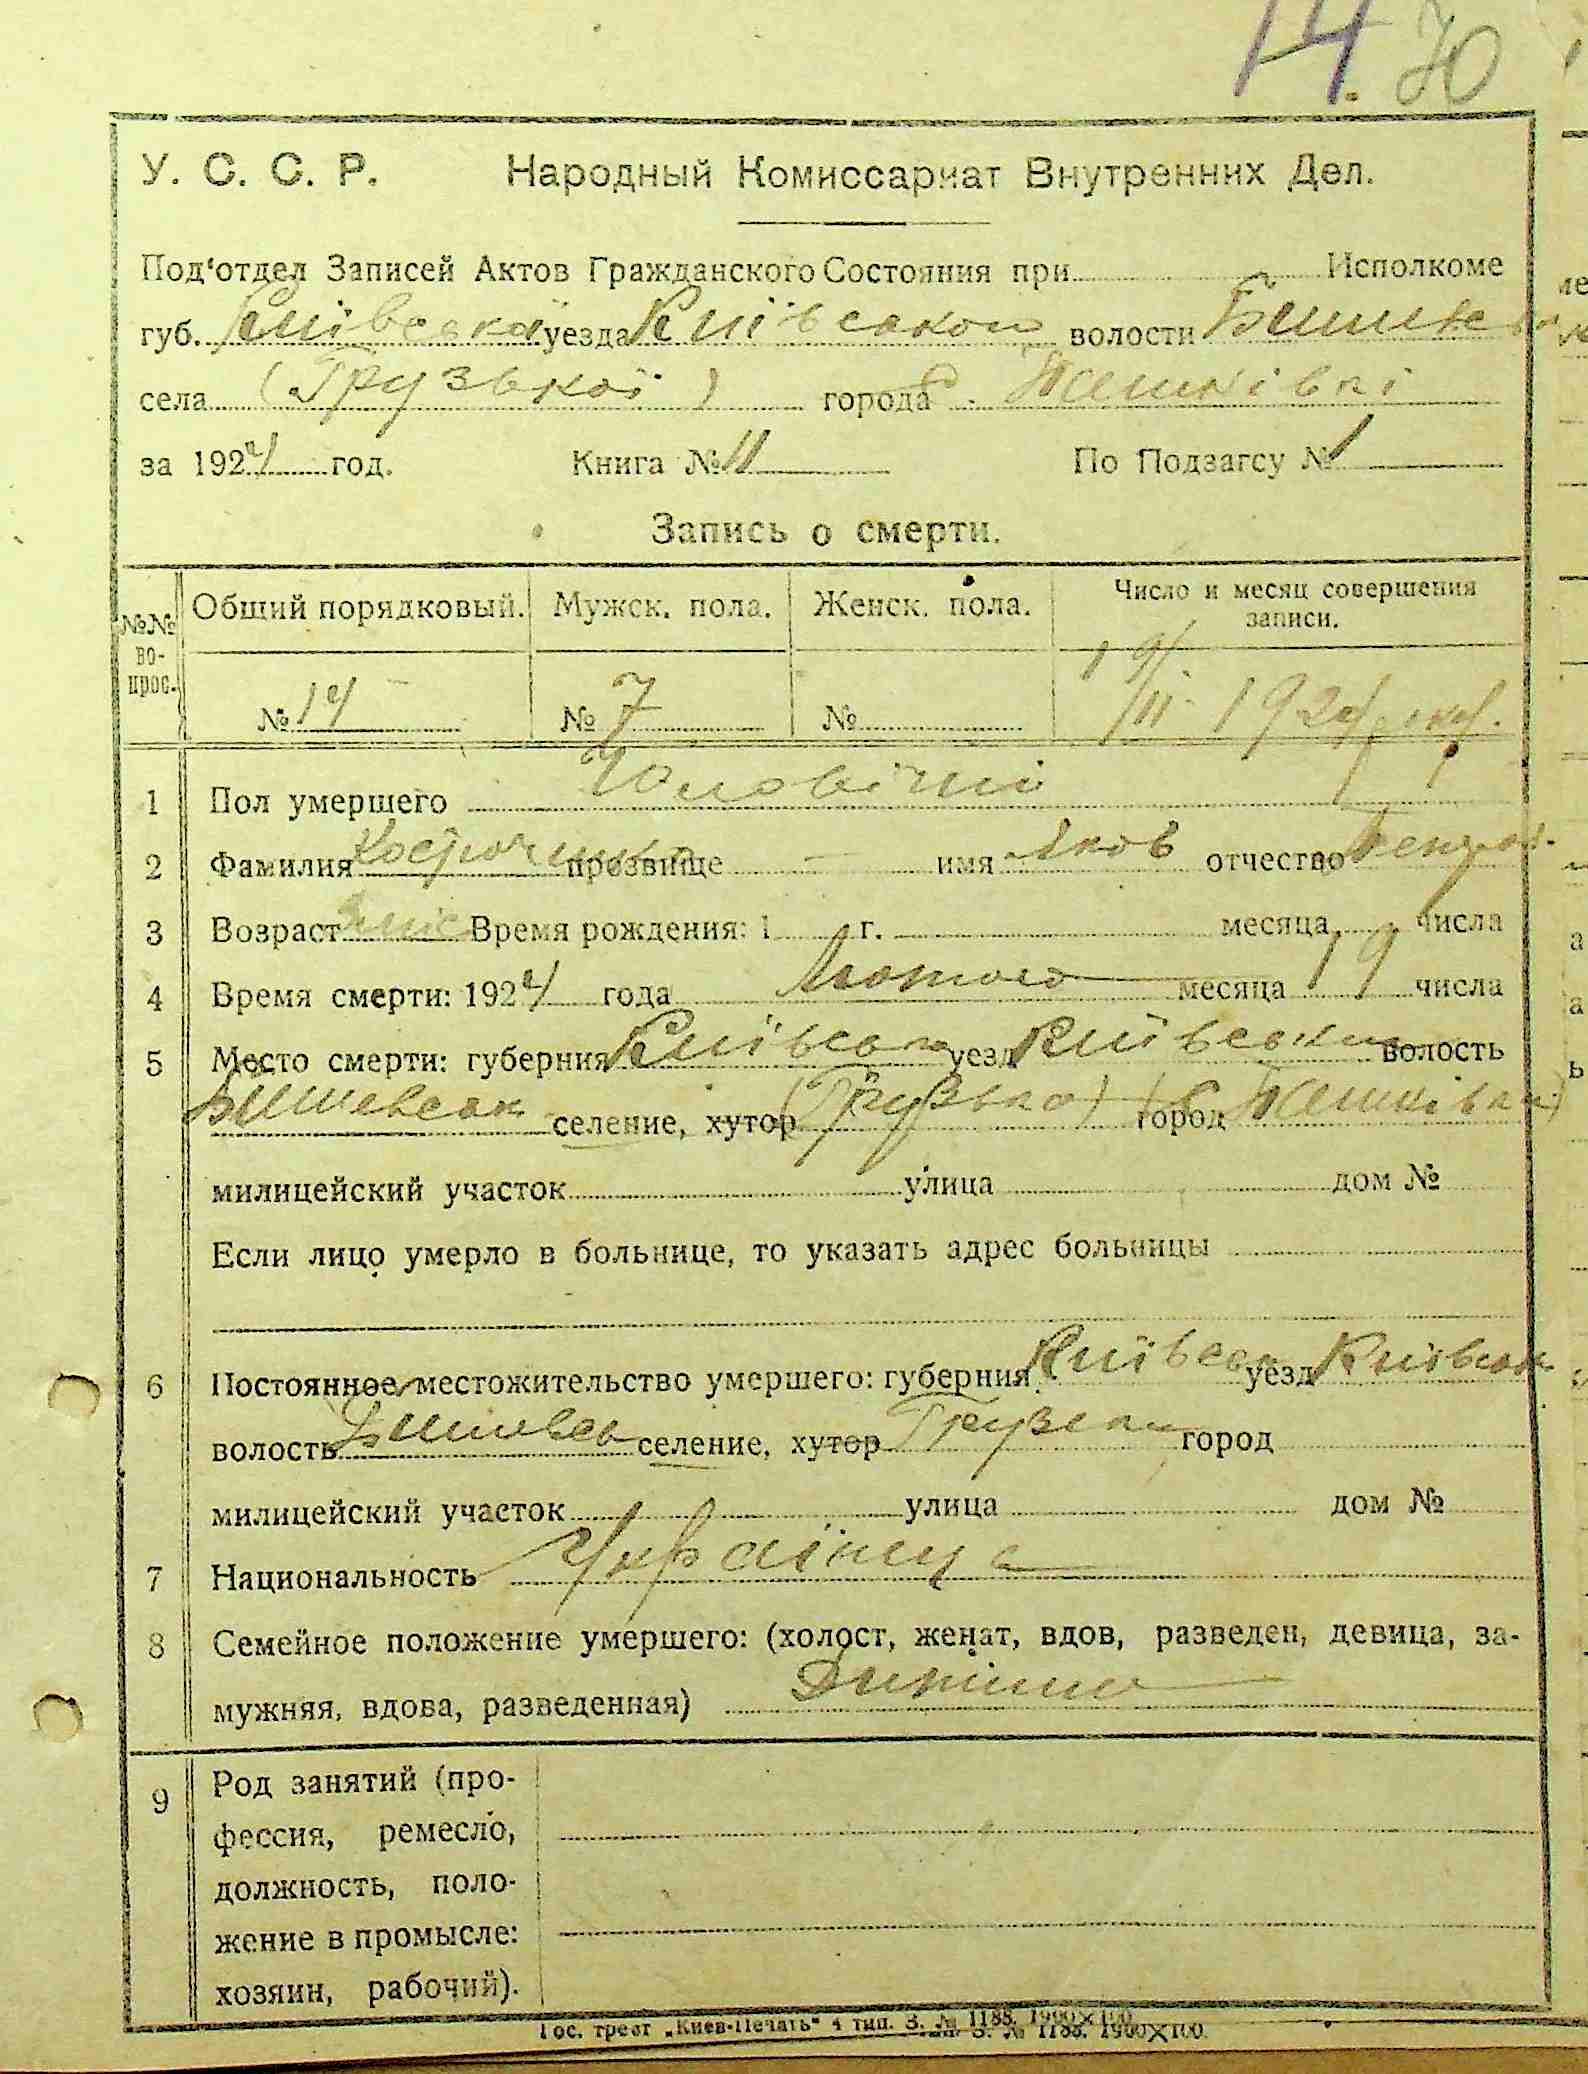 14. 70
У. С. С. Р. Народный Комиссариат Внутренних Дел.
Под‘отдел Записей Актов Гражданского Состояния при Исполкоме
губ. Київської уезда Київського волости
села (Грузької) города
за 1924 год. Книга № II По Подзагсу № 1
Запись о смерти.
№№ вопрос. Общий порядковый. Мужск. пола. Женск. пола. Число и месяц совершения записи.
№ 14 № 7 № 19/III 1924
1 Пол умершего Чоловічий
2 Фамилия прозвище — имя Яков отчество
3 Возраст Время рождения: 1 г. месяца числа
4 Время смерти: 1924 года Лютого месяца 19 числа
5 Место смерти: губерния Київська уезд Київський волость
Бишевськ селение, хутор (Грузька) город
милицейский участок улица дом №
Если лицо умерло в больнице, то указать адрес больницы
6 Постоянное местожительство умершего: губерния Київськ уезд Київськ
волость Бишевсь селение, хутор город
милицейский участок улица дом №
7 Национальность Українец
8 Семейное положение умершего: (холост, женат, вдов, разведен, девица, за-
мужняя, вдова, разведенная) Дитина
9 Род занятий (про-
фессия, ремесло,
должность, поло-
жение в промысле:
хозяин, рабочий).
Гос. трест „Киев-Печать“ 4 тип. З. № 1188. 1900×100.